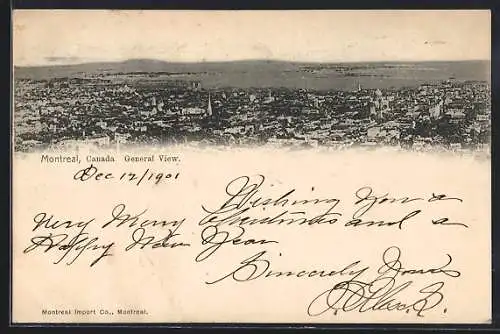 Montreal, Canada General View.
Dec 12/1901
Wishing You a
Very Mery Christmas and a
Happy New Year
Sincerely Yours
Montreal Import Co., Montreal.